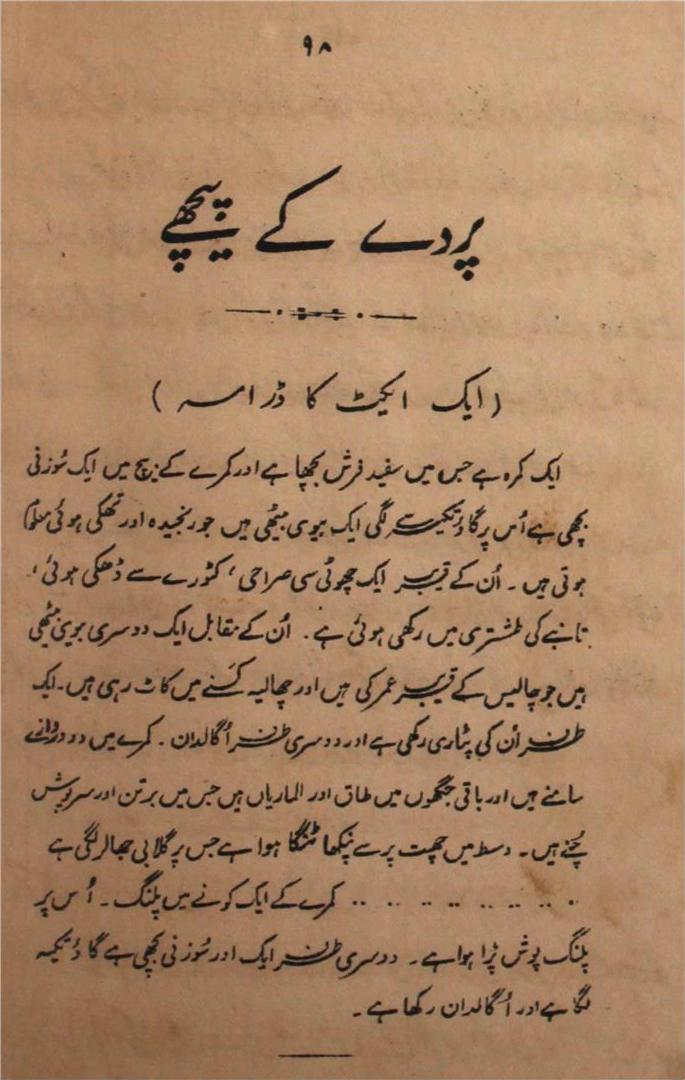 ۹۸
پردے کے پیچھے
(ایک ایکٹ کا ڈرامہ)
ایک کمرہ ہے جس میں سفید فرش بچھا ہے اور کمرے کے بیچ میں ایک سُوزنی
بچھی ہے اُس پر گاؤ تکیہ سے لگی ایک بیوی بیٹھی ہیں جو رنجیدہ اور تھکی ہوئی معلوم
ہوتی ہیں۔ اُن کے قریب ایک چھوٹی سی صراحی، کٹورے سے ڈھکی ہوئی،
تانبے کی طشتری میں رکھی ہوئی ہے۔ اُن کے مقابل ایک دوسری بیوی بیٹھی
ہیں جو چالیس کے قریب عمر کی ہیں اور چھالیہ کسنے میں کاٹ رہی ہیں۔ ایک
طرف اُن کی پٹاری رکھی ہے اور دوسری طرف اُگالدان۔ کمرے میں دو دروازے
سامنے ہیں اور باقی جگھوں میں طاق اور الماریاں ہیں جس میں برتن اور سرپوش
چُنے ہیں۔ وسط میں چھت پر سے پنکھا ٹنگا ہوا ہے جس پر گلابی جھالر لگی ہے
.. .. .. .. .. .. .. .. کمرے کے ایک کونے میں پلنگ۔ اُس پر
پلنگ پوش پڑا ہوا ہے۔ دوسری طرف ایک اور سُوزنی بچھی ہے گاؤ تکیہ
لگا ہے اور اُگالدان رکھا ہے۔